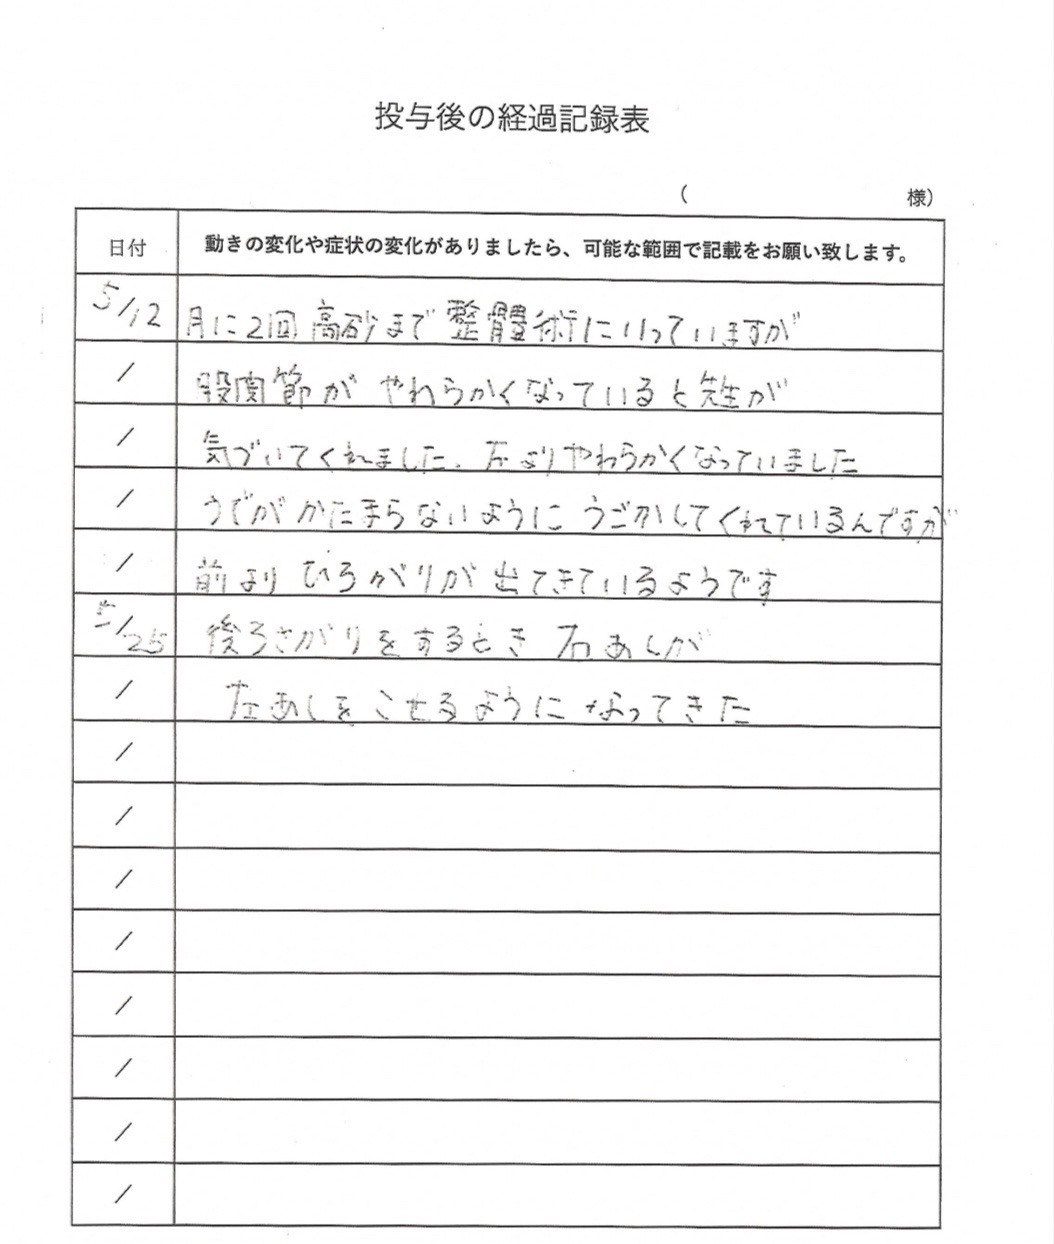 投与後の経過記録表
( 様)
日付 動きの変化や症状の変化がありましたら、可能な範囲で記載をお願い致します。
5/12 月に2回 高砂まで 整體術にいっていますが
/ 股関節が やわらかくなっていると先生が
/ 気づいてくれました。 左よりやわらかくなっていました
/ うでがかたまらないように うごかしてくれているんですが
/ 前より ひろがりが出てきているようです
5/25 後ろさがりをするとき 右あしが
/ 左あしをこせるようになってきた
/
/
/
/
/
/
/
/